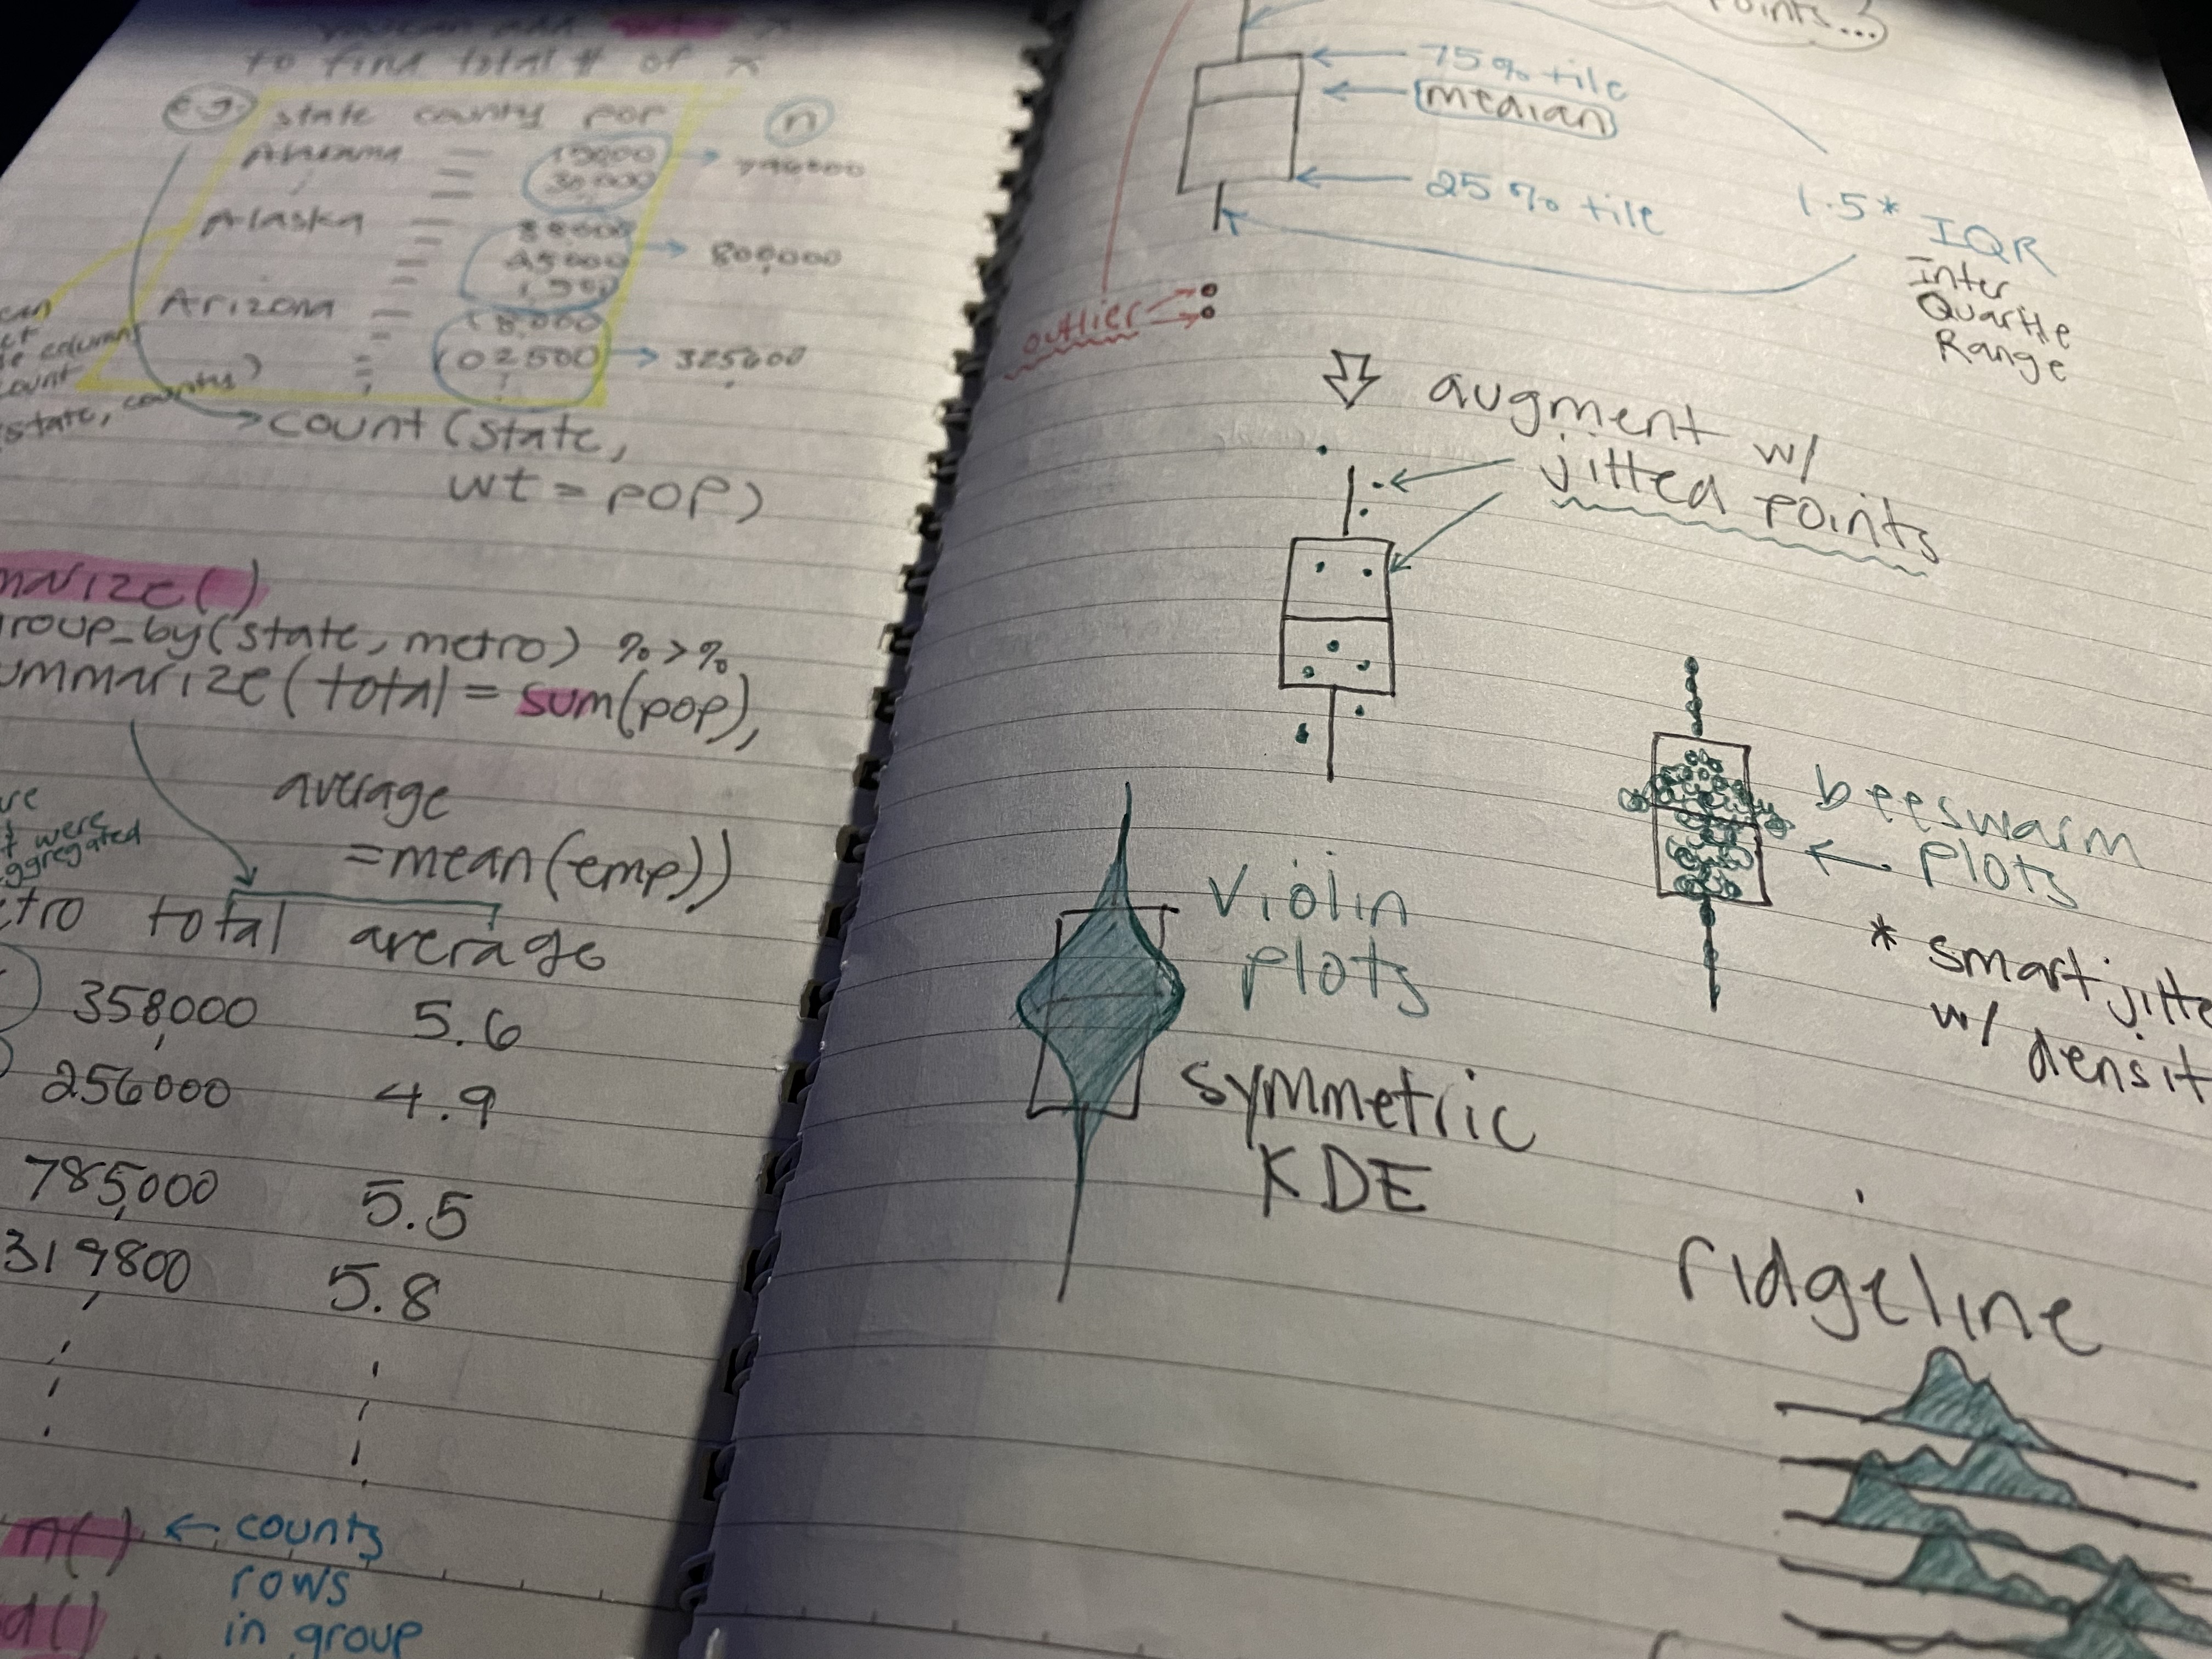 to find total # of x
e.g.
state county pop
n
Alabama
30,000
Alaska
25000
800,000
Arizona
18,000
02500
325600
count (state,
wt = pop)
state,
marize()
roup_by(state, metro) %>%
ummarize(total = sum(pop),
average
=mean(emp))
were
ggregated
tro total average
358,000 5.6
256000 4.9
785,000 5.5
319800 5.8
n() ← counts
rows
in group
d()
points...
75%tile
median
25%tile
1.5* IQR
Inter
Quartile
Range
outlier
augment w/
jitted points
beeswarm
plots
* smart jitte
w/ densit
violin
plots
symmetric
KDE
ridgeline